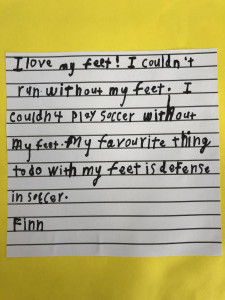 I love my feet! I couldn't
run without my feet. I
couldn't play soccer without
my feet. My favourite thing
to do with my feet is defense
in soccer.
Finn